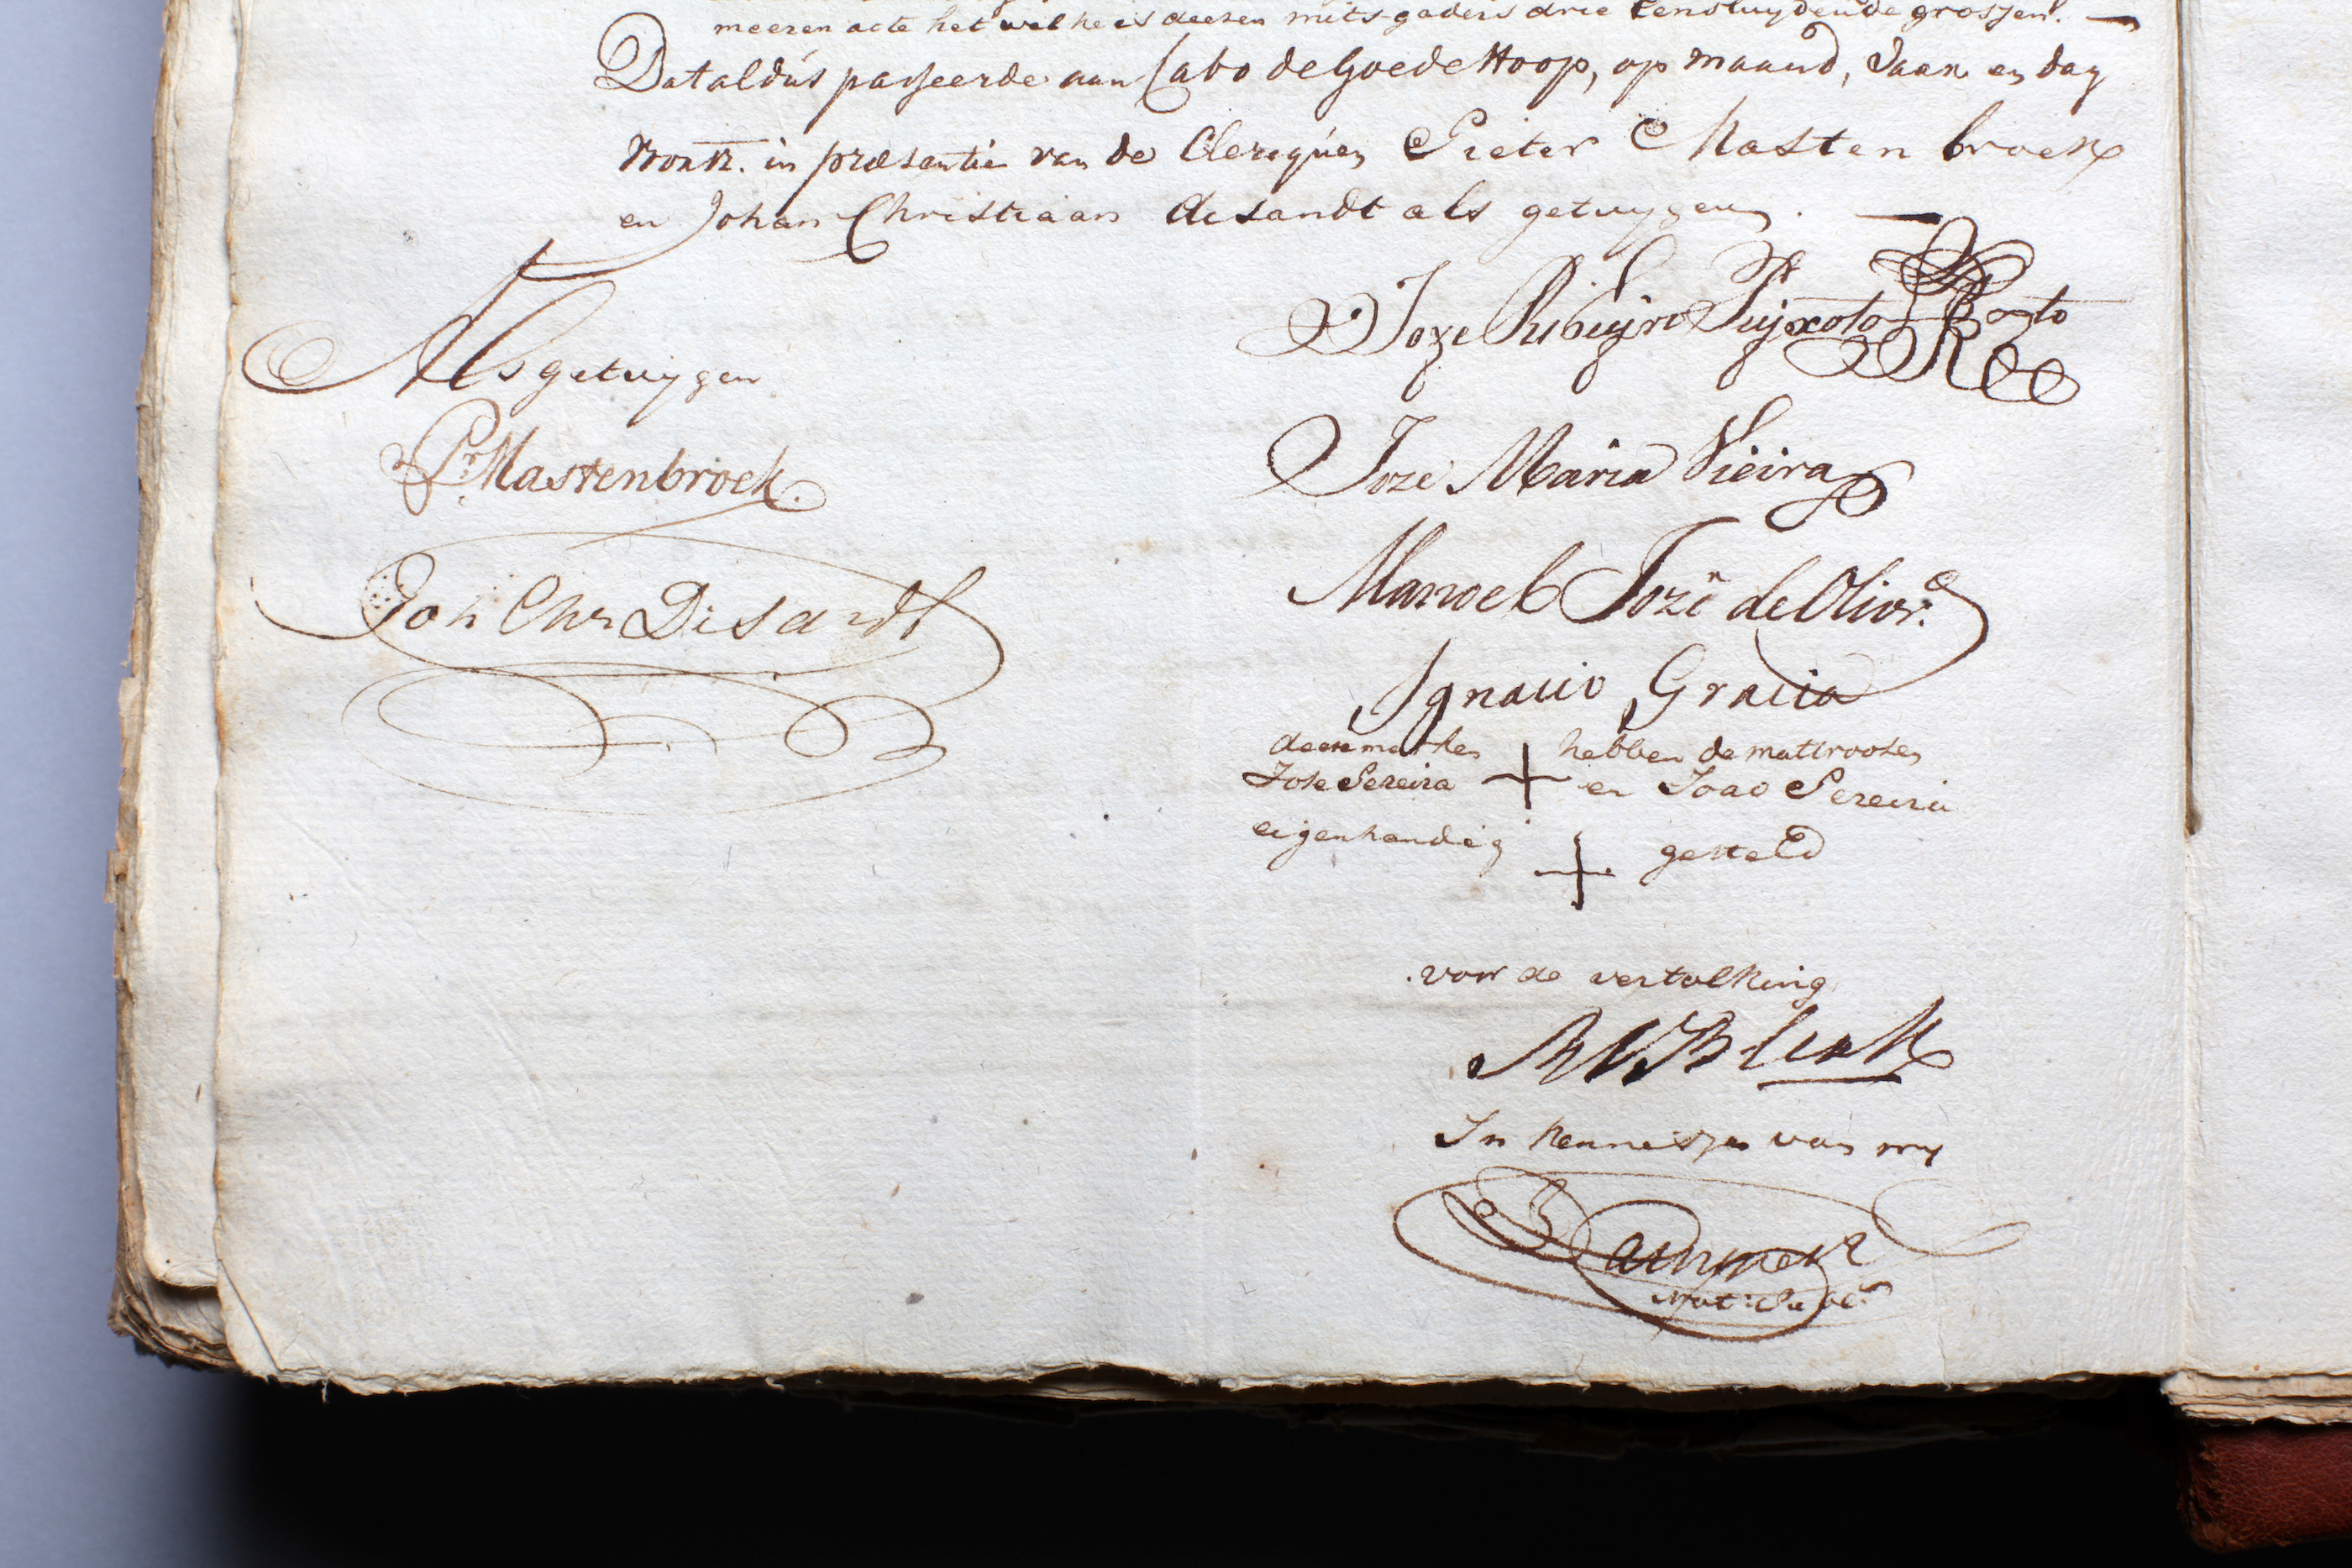 meeren acte het welke is deesen mitsgaders drie Eensluydende grossen.
Dataldus passeerde aan Cabo de Goede Hoop, op maand, Jaar en dag
voorsz. in præsentie van de Clercquen Pieter Mastenbroek
en Johan Christiaan Disandt als getuygen.
Als getuygen
Pr. Mastenbroek.
Joh Chr Disandt
Joze Ribeyro Peyxoto
Joze Maria Vieira
Manoel Joze de Olivr.a
Ignacio Gracia
deese merken + hebben de mattroosen
Jose Pereira en Joao Pereira
eigenhandig + gesteld
voor de vertolking
In kennisse van my
Not: Publ: